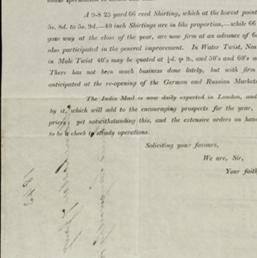 A 9-8 25 yard 66 reed Shirtings, which at the lowest point
5s. 8d. to 5s. 9d.—40 inch Shirtings are in like proportion,—while 66
your way at the close of the year, are now firm at an advance of
also participated in the general improvement. In Water Twist,
in Mule Twist 40's may be quoted at ½d. ℔ lb., and 50's and 60's
There has not been much business done lately, but with firm
anticipated at the re-opening of the German and Russian Markets
The India Mail is now daily expected in London, and
by it, which will add to the encouraging prospects for the year,
prices; yet notwithstanding this, and the extensive orders on hand
to be a check to steady operations.
Soliciting your favours,
We are, Sir,
Your faith